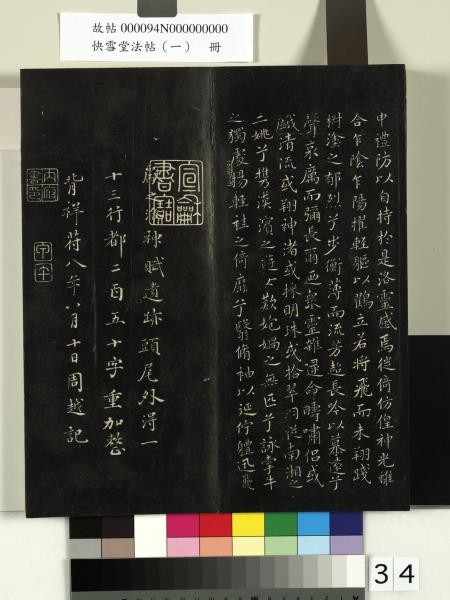 故帖 000094N000000000
快雪堂法帖（一） 冊
申禮防以自持於是洛靈感焉徙倚仿偟神光離
合乍陰乍陽擢輕軀以鶴立若將飛而未翔踐
椒塗之郁烈兮步蘅薄而流芳超長吟以慕遠兮
聲哀厲而彌長爾乃衆靈雜遝命疇嘯侶或
戲清流或翔神渚或採明珠或拾翠羽從南湘之
二姚兮攜漢濱之遊女歎炮媧之無匹兮詠牽牛
之獨處揚輕袿之倚靡兮翳脩袖以延佇體迅飛
神賦遺跡頭尾外得一
十三行都二百五十字重加整
背祥符八年八月十日周越記
34